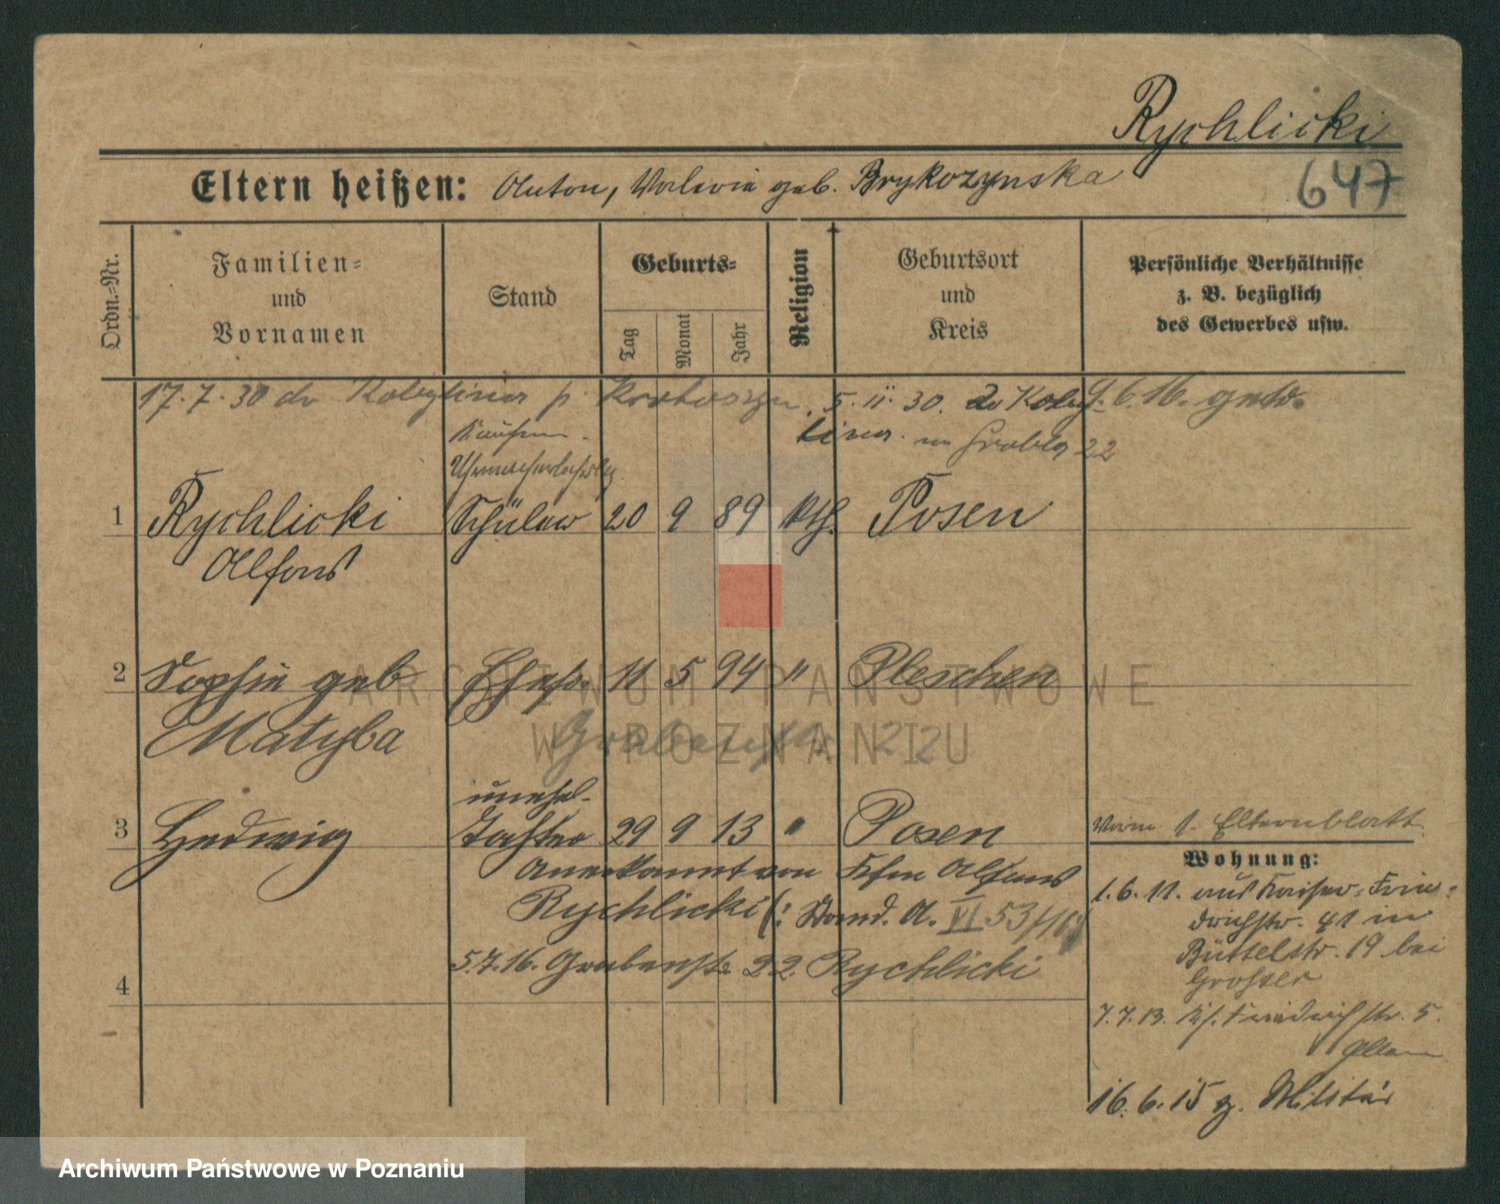 Rychlicki
647
Eltern heißen: Anton, Valeria geb. Brykozynska
Ordn.-Nr.
Familien=
und
Vornamen
Stand
Geburts=
Tag
Monat
Jahr
Religion
Geburtsort
und
Kreis
Persönliche Verhältnisse
z. B. bezüglich
des Gewerbes usw.
17.7.30 Kobylina p. Krotoszyn 5.11.30. 9.6.16. getr.
Grobla 22
1 Rychlicki Schüler 20 9 89 kth. Posen
Alfons
2 Sophie geb Ehefr. 11 5 94 " Pleschen
Matyba
Grabenstr. 22
unehel.
3 Hedwig Tochter 29 9 13 " Posen
Vom 1. Elternblatt
Anerkannt von Kfm Alfons
Rychlicki (: Stand. A. VI 53/16 :)
5.7.16. Grabenstr. 22 Rychlicki
4
Wohnung:
1.6.11. aus Kaiser=Frie=
drichstr. 41 in
Büttelstr. 19 bei
7.7.13. Friedrichstr. 5.
16.6.15 z. Militär
ARCHIWUM PAŃSTWOWE
W POZNANIU
Archiwum Państwowe w Poznaniu